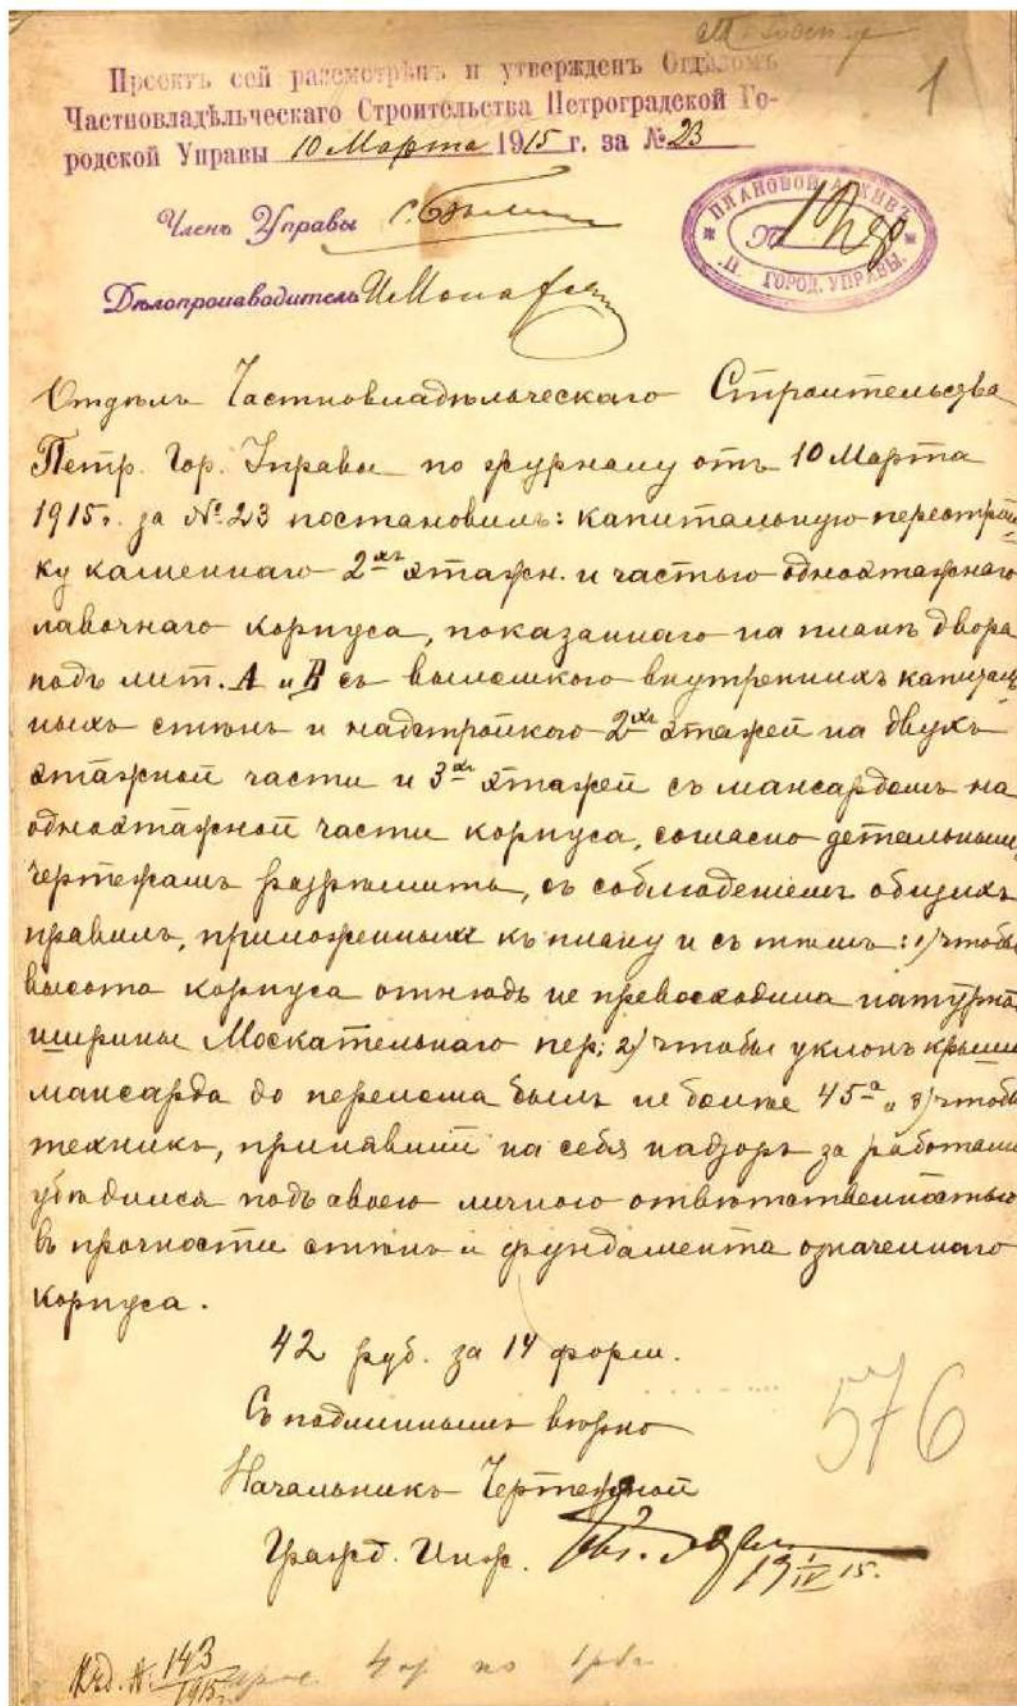 1
Проектъ сей разсмотрѣнъ и утвержденъ Отдѣломъ
Частновладѣльческаго Строительства Петроградской Го-
родской Управы 10 Марта 1915 г. за № 23
Членъ Управы
ПЛАНОВОЙ АРХИВЪ
П. ГОРОД. УПРАВЫ.
Дѣлопроизводитель
Отдѣлъ Частновладѣльческаго Строительства
Петр. Гор. Управы по журналу отъ 10 Марта
1915 г. за № 23 постановилъ: капитальную перестрой
ку каменнаго 2хъ этажн. и частью одноэтажнаго
лавочнаго корпуса, показаннаго на планѣ двора
подъ лит. А и В съ выломкою внутреннихъ капиталь
ныхъ стѣнъ и надстройкою 2хъ этажей на двухъ
этажной части и 3хъ этажей съ мансардомъ на
одноэтажной части корпуса, согласно детальнымъ
чертежамъ разрѣшить, съ соблюденіемъ общихъ
правилъ, приложенныхъ къ плану и съ тѣмъ: 1) чтобы
высота корпуса отнюдь не превосходила натурной
ширины Москательнаго пер; 2) чтобы уклонъ крыши
мансарда до перелома былъ не болѣе 45° и 3) чтобы
техникъ, принявшій на себя надзоръ за работами
убѣдился подъ своею личною отвѣтственностью
въ прочности стѣнъ и фундамента означеннаго
корпуса.
42 руб. за 14 форм.
Съ подлиннымъ вѣрно
576
Начальникъ Чертежной
Гражд. Инж.
19 1/IV 15.
143
1915 г.
4 по 1 р